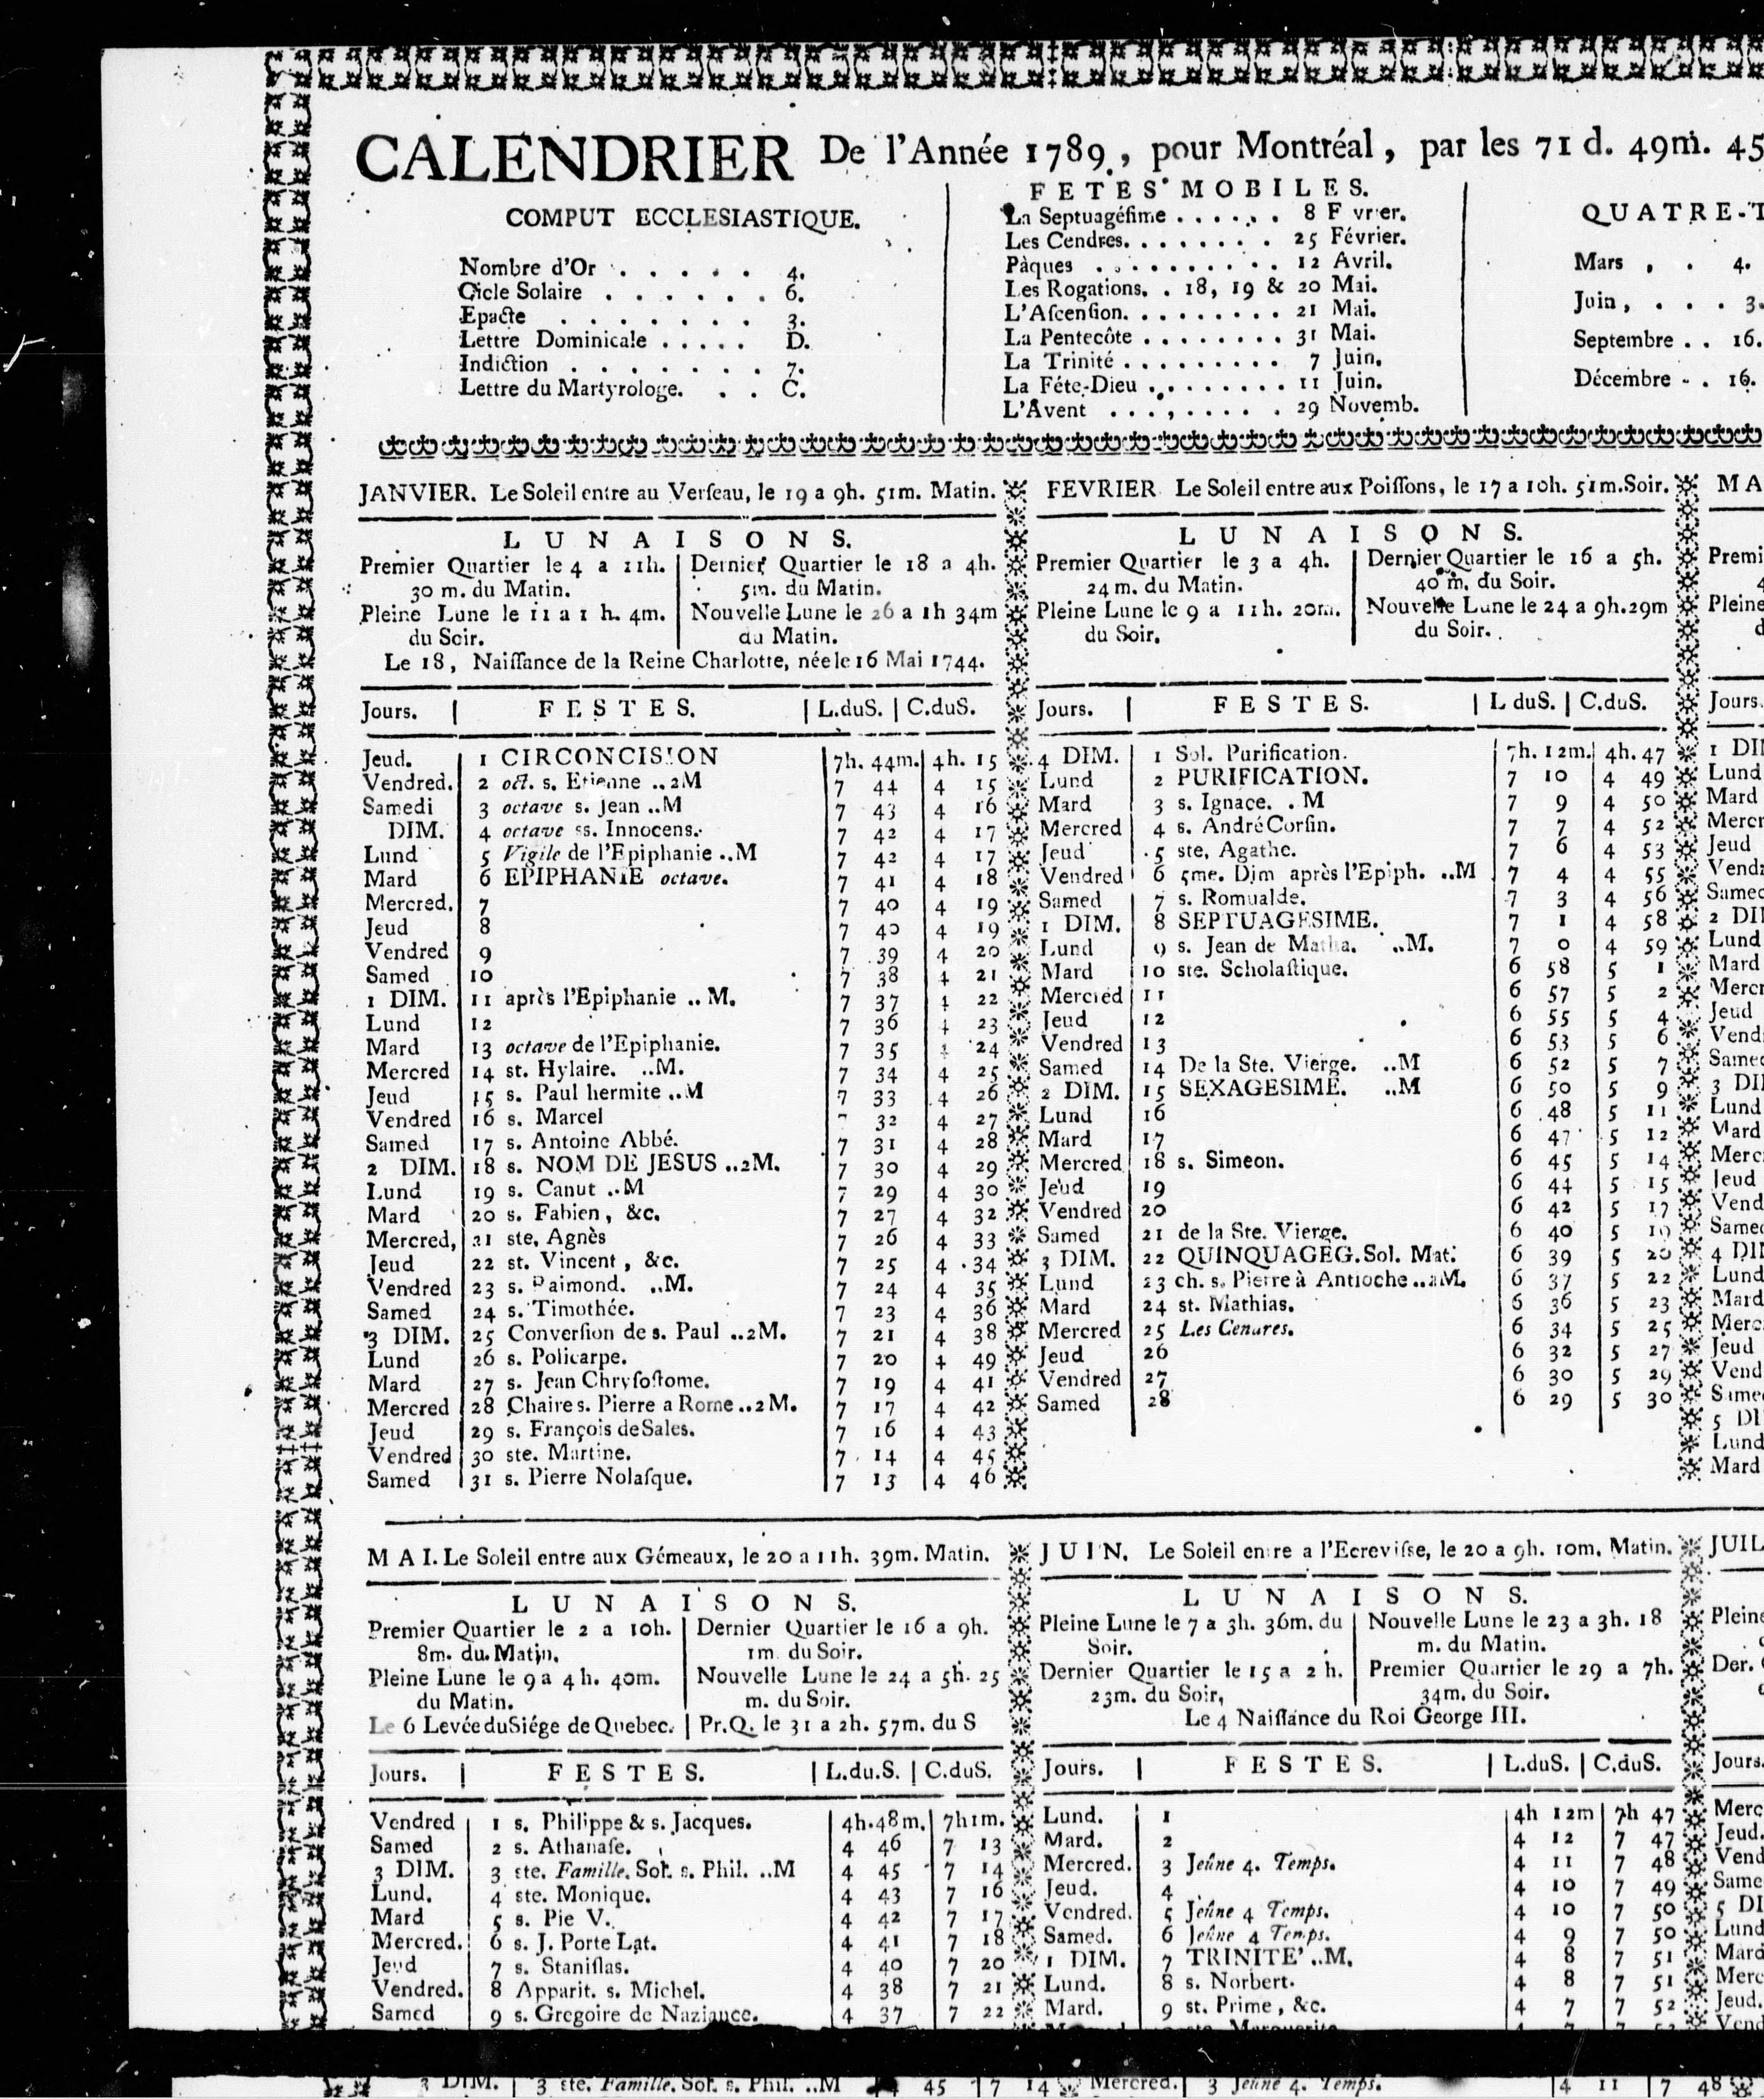 CALENDRIER De l'Année 1789, pour Montréal, par les 71 d. 49m. 45
COMPUT ECCLESIASTIQUE.
Nombre d'Or . . . . . 4.
Cicle Solaire . . . . . . 6.
Epacte . . . . . . . 3.
Lettre Dominicale . . . . . D.
Indiction . . . . . . . . 7.
Lettre du Martyrologe. . . C.
FETES MOBILES.
La Septuagésime . . . . . . 8 F vrier.
Les Cendres. . . . . . . . 25 Février.
Pàques . . . . . . . . . . 12 Avril.
Les Rogations. . 18, 19 & 20 Mai.
L'Ascension. . . . . . . . . 21 Mai.
La Pentecôte . . . . . . . . 31 Mai.
La Trinité . . . . . . . . . 7 Juin.
La Féte-Dieu . . . . . . . . 11 Juin.
L'Avent . . . , . . . . . 29 Novemb.
QUATRE-T
Mars , . 4.
Juin, . . . 3.
Septembre . . 16.
Décembre - . 16.
JANVIER. Le Soleil entre au Verseau, le 19 a 9h. 51m. Matin.
LUNAISONS.
Premier Quartier le 4 a 11h.
30 m. du Matin.
Pleine Lune le 11 a 1 h. 4m.
du Soir.
Dernier Quartier le 18 a 4h.
5m. du Matin.
Nouvelle Lune le 26 a 1h 34m
du Matin.
Le 18, Naissance de la Reine Charlotte, née le 16 Mai 1744.
Jours. | FESTES. | L.duS. | C.duS.
Jeud. 1 CIRCONCISION 7h. 44m. 4h. 15
Vendred. 2 oct. s. Etienne ..2M 7 44 4 15
Samedi 3 octave s. Jean ..M 7 43 4 16
DIM. 4 octave ss. Innocens. 7 42 4 17
Lund 5 Vigile de l'Epiphanie ..M 7 42 4 17
Mard 6 EPIPHANIE octave. 7 41 4 18
Mercred. 7 7 40 4 19
Jeud 8 7 40 4 19
Vendred 9 7 39 4 20
Samed 10 7 38 4 21
1 DIM. 11 après l'Epiphanie .. M. 7 37 4 22
Lund 12 7 36 4 23
Mard 13 octave de l'Epiphanie. 7 35 4 24
Mercred 14 st. Hylaire. ..M. 7 34 4 25
Jeud 15 s. Paul hermite ..M 7 33 4 26
Vendred 16 s. Marcel 7 32 4 27
Samed 17 s. Antoine Abbé. 7 31 4 28
2 DIM. 18 s. NOM DE JESUS ..2M. 7 30 4 29
Lund 19 s. Canut ..M 7 29 4 30
Mard 20 s. Fabien, &c. 7 27 4 32
Mercred, 21 ste, Agnès 7 26 4 33
Jeud 22 st. Vincent, &c. 7 25 4 34
Vendred 23 s. Raimond. ..M. 7 24 4 35
Samed 24 s. Timothée. 7 23 4 36
3 DIM. 25 Conversion de s. Paul ..2M. 7 21 4 38
Lund 26 s. Policarpe. 7 20 4 49
Mard 27 s. Jean Chrysostome. 7 19 4 41
Mercred 28 Chaire s. Pierre a Rome ..2M. 7 17 4 42
Jeud 29 s. François de Sales. 7 16 4 43
Vendred 30 ste. Martine. 7 14 4 45
Samed 31 s. Pierre Nolasque. 7 13 4 46
FEVRIER Le Soleil entre aux Poissons, le 17 a 10h. 51m. Soir.
LUNAISONS.
Premier Quartier le 3 a 4h.
24 m. du Matin.
Pleine Lune le 9 a 11h. 20m.
du Soir.
Dernier Quartier le 16 a 5h.
40 m. du Soir.
Nouvelle Lune le 24 a 9h.29m
du Soir.
Jours. | FESTES. | L duS. | C.duS.
4 DIM. 1 Sol. Purification. 7h. 12m. 4h. 47
Lund 2 PURIFICATION. 7 10 4 49
Mard 3 s. Ignace. . M 7 9 4 50
Mercred 4 s. André Corsin. 7 7 4 52
Jeud 5 ste, Agathe. 7 6 4 53
Vendred 6 5me. Dim après l'Epiph. ..M 7 4 4 55
Samed 7 s. Romualde. 7 3 4 56
1 DIM. 8 SEPTUAGESIME. 7 1 4 58
Lund 9 s. Jean de Matha. ..M. 7 0 4 59
Mard 10 ste. Scholastique. 6 58 5 1
Mercred 11 6 57 5 2
Jeud 12 6 55 5 4
Vendred 13 6 53 5 6
Samed 14 De la Ste. Vierge. ..M 6 52 5 7
2 DIM. 15 SEXAGESIME. ..M 6 50 5 9
Lund 16 6 48 5 11
Mard 17 6 47 5 12
Mercred 18 s. Simeon. 6 45 5 14
Jeud 19 6 44 5 15
Vendred 20 6 42 5 17
Samed 21 de la Ste. Vierge. 6 40 5 19
3 DIM. 22 QUINQUAGEG. Sol. Mat. 6 39 5 20
Lund 23 ch. s. Pierre à Antioche ..2M. 6 37 5 22
Mard 24 st. Mathias. 6 36 5 23
Mercred 25 Les Cendres. 6 34 5 25
Jeud 26 6 32 5 27
Vendred 27 6 30 5 29
Samed 28 6 29 5 30
MA
Premi
Pleine
Jours.
1 DI
Lund
Mard
Mercr
Jeud
Vend
Samed
2 DI
Lund
Mard
Mercr
Jeud
Vend
Samed
3 DI
Lund
Mard
Merc
Jeud
Vend
Samed
4 DI
Lund
Mard
Merc
Jeud
Vend
Samed
5 DI
Lund
Mard
MAI. Le Soleil entre aux Gémeaux, le 20 a 11h. 39m. Matin.
LUNAISONS.
Premier Quartier le 2 a 10h.
8m. du Matin.
Pleine Lune le 9 a 4 h. 40m.
du Matin.
Dernier Quartier le 16 a 9h.
1m. du Soir.
Nouvelle Lune le 24 a 5h. 25
m. du Soir.
Le 6 Levée du Siége de Quebec. | Pr.Q. le 31 a 2h. 57m. du S
Jours. | FESTES. | L.du.S. | C.duS.
Vendred 1 s. Philippe & s. Jacques. 4h.48m. 7h1m.
Samed 2 s. Athanase. 4 46 7 13
3 DIM. 3 ste. Famille. Sol. s. Phil. ..M 4 45 7 14
Lund. 4 ste. Monique. 4 43 7 16
Mard 5 s. Pie V. 4 42 7 17
Mercred. 6 s. J. Porte Lat. 4 41 7 18
Jeud 7 s. Stanislas. 4 40 7 20
Vendred. 8 Apparit. s. Michel. 4 38 7 21
Samed 9 s. Gregoire de Naziance. 4 37 7 22
JUIN. Le Soleil entre a l'Ecrevisse, le 20 a 9h. 10m. Matin.
LUNAISONS.
Pleine Lune le 7 a 3h. 36m. du
Soir.
Dernier Quartier le 15 a 2 h.
23m. du Soir,
Nouvelle Lune le 23 a 3h. 18
m. du Matin.
Premier Quartier le 29 a 7h.
34m. du Soir.
Le 4 Naissance du Roi George III.
Jours. | FESTES. | L.duS. | C.duS.
Lund. 1 4h 12m 7h 47
Mard. 2 4 12 7 47
Mercred. 3 Jeûne 4. Temps. 4 11 7 48
Jeud. 4 4 10 7 49
Vendred. 5 Jeûne 4 Temps. 4 10 7 50
Samed. 6 Jeûne 4 Temps. 4 9 7 50
1 DIM. 7 TRINITE' ..M. 4 8 7 51
Lund. 8 s. Norbert. 4 8 7 51
Mard. 9 st. Prime, &c. 4 7 7 52
JUIL
Pleine
Der.
Jours.
Merc
Jeud.
Vend
Same
5 DI
Lund
Mard
Merc
Jeud.
Vend
3 DIM. 3 ste. Famille. Sol. s. Phil. ..M 45 7 14 Mercred. 3 Jeûne 4. Temps. 4 11 7 48